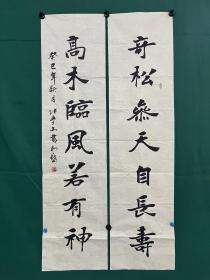 奇松叅天自長壽
高木臨風若有神
癸巳年於月